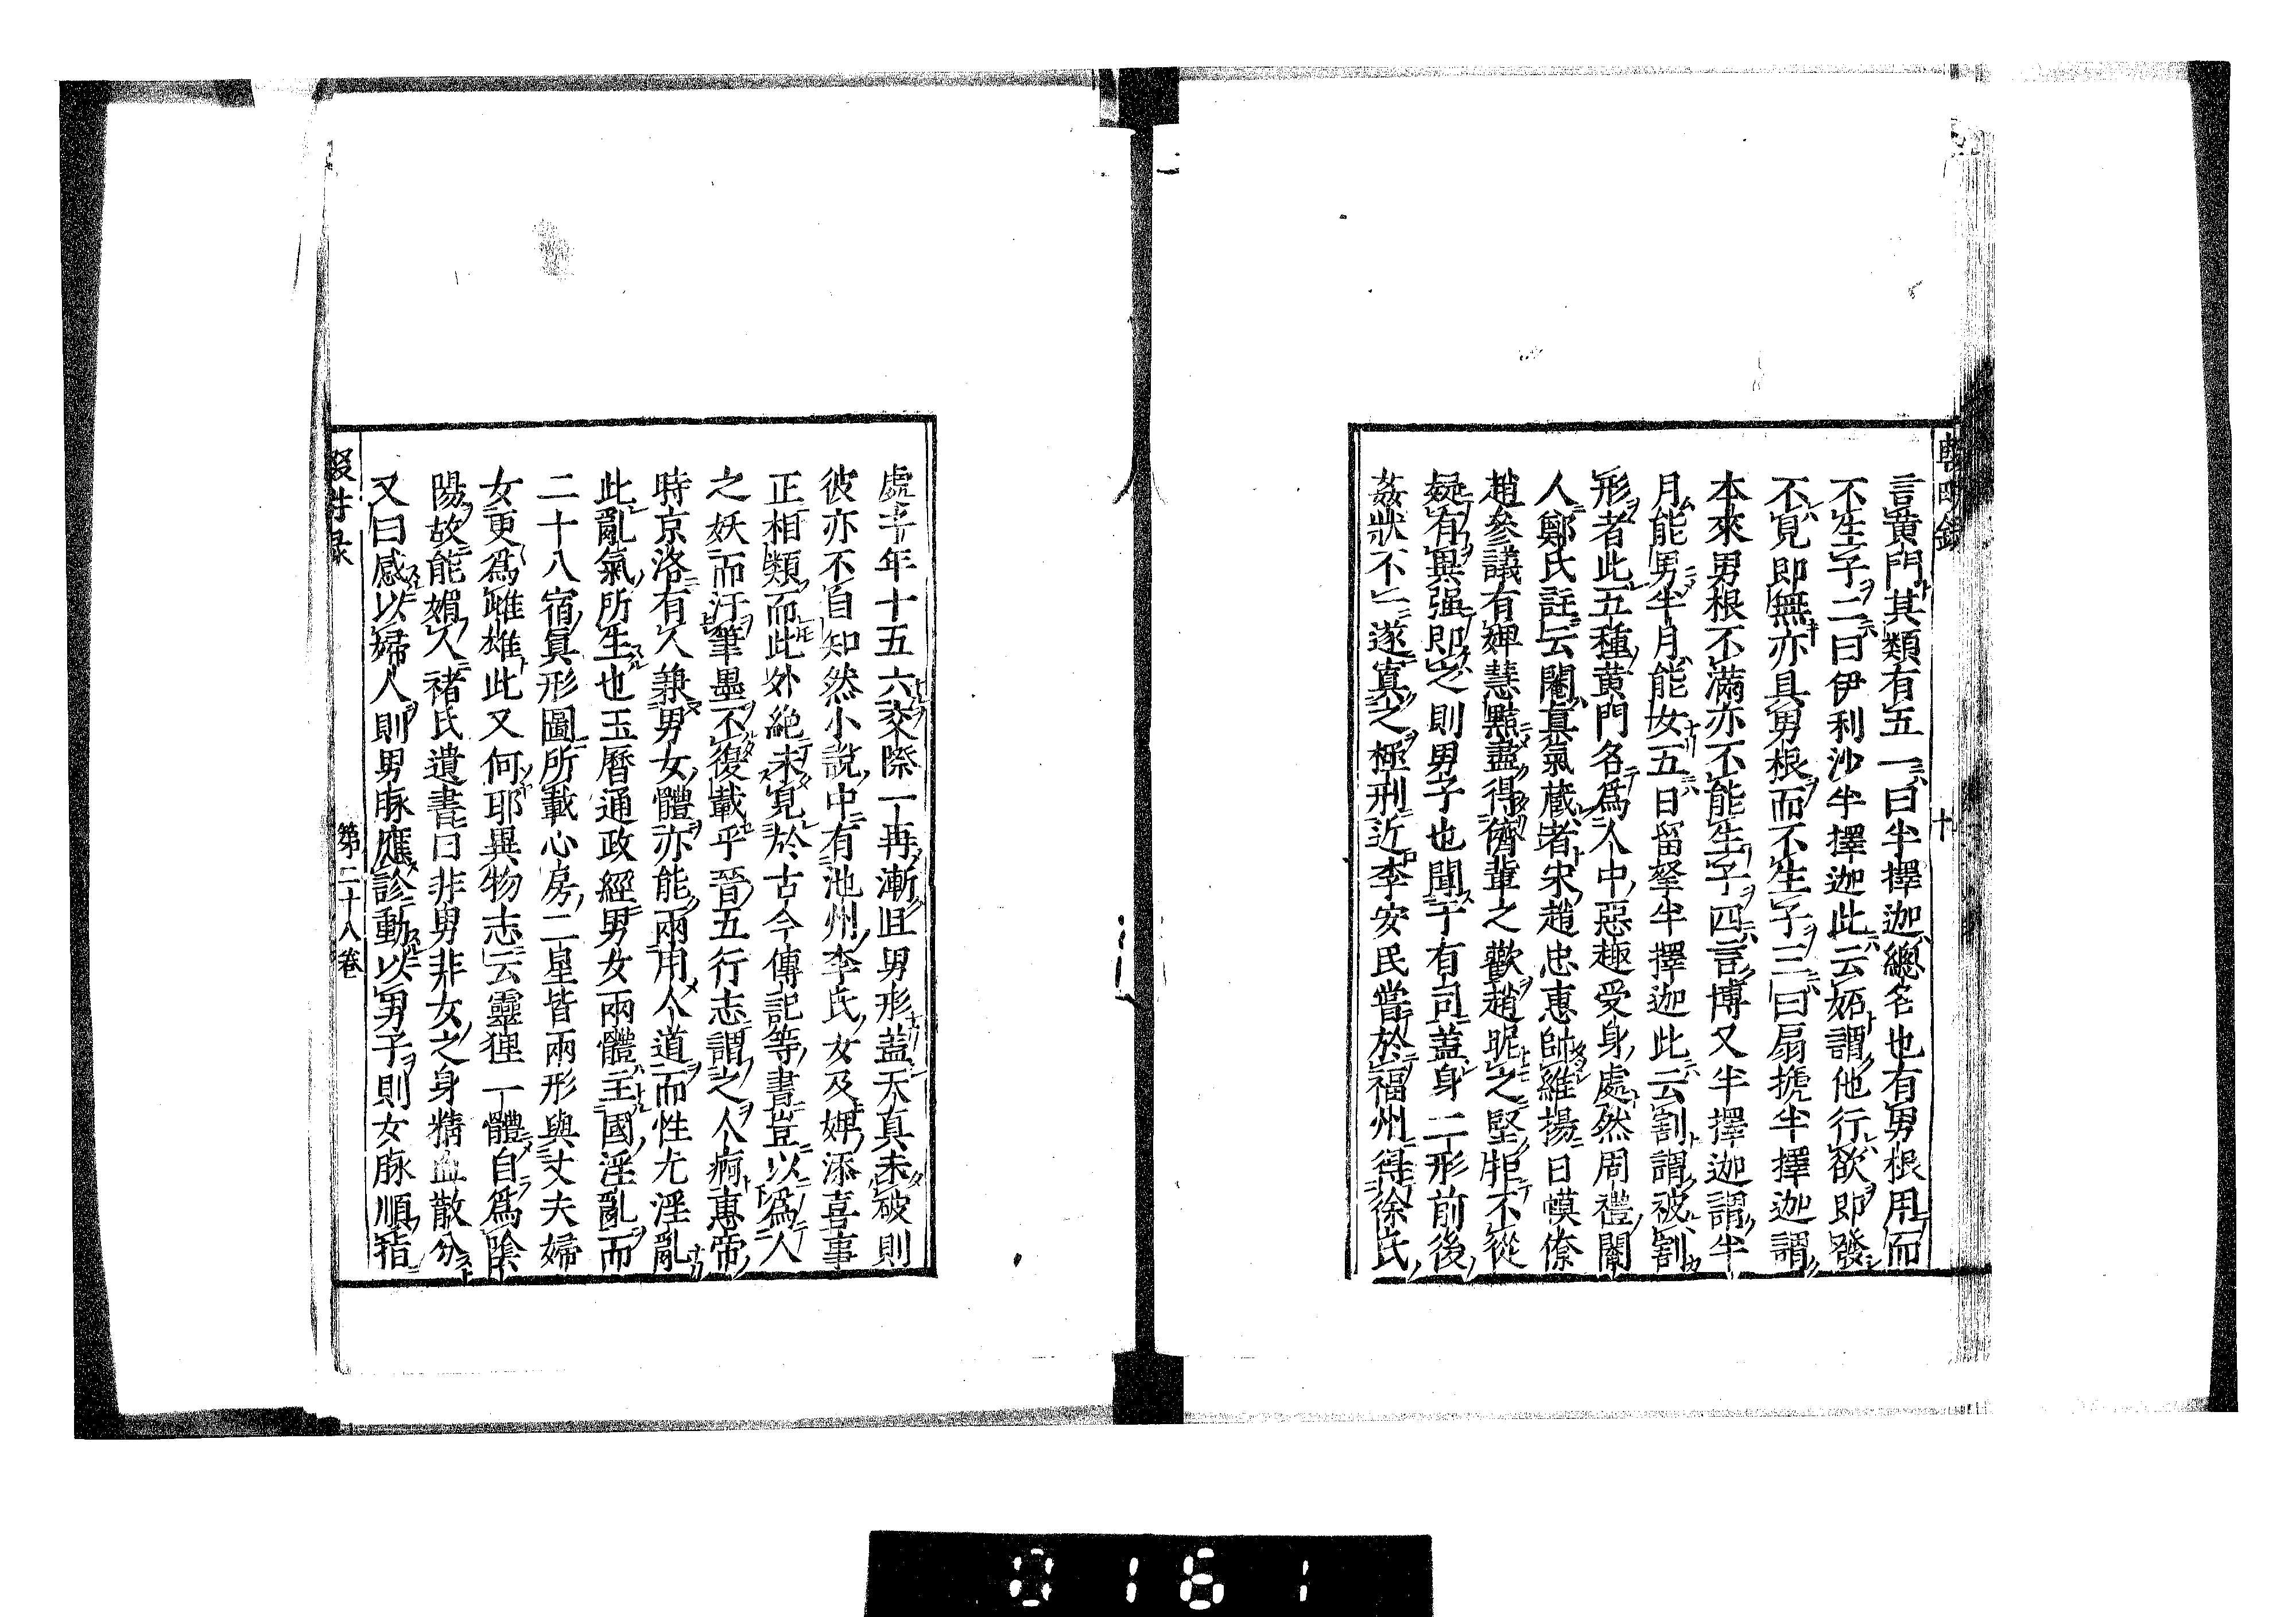 言黃門其類有五一曰半擇迦總名也有男根用而
不生子二曰伊利沙半擇迦此云妬謂他行欲即發
不見即無亦具男根而不生子三曰扇搋半擇迦謂
本來男根不滿亦不能生子四言博叉半擇迦謂半
月能男半月能女五曰留拏半擇迦此云割謂被割
形者此五種黃門名爲人中惡趣受身處然周禮閹
人鄭氏註云閹眞氣藏者宋趙忠惠帥維揚日幙僚
趙參議有婢慧黠盡得儕輩之歡趙昵之堅拒不從
疑有異强即之則男子也聞于有司蓋身二形前後
姦狀不一遂寘之極刑近李安民嘗於福州得徐氏
處子年十五六交際一再漸且男形蓋天真未破則
彼亦不自知然小說中有池州李氏女及婢添喜事
正相類而此外絶未見於古今傳記等書豈以爲人
之妖而汙筆墨不復載乎晉五行志謂之人痾惠帝
時京洛有人兼男女體亦能兩用人道而性尤淫亂
此亂氣所生也玉曆通政經男女兩體主國淫亂而
二十八宿眞形圖所載心房二星皆兩形與丈夫婦
女更爲雌雄此又何耶異物志云靈狸一體自爲陰
陽故能媚人褚氏遺書曰非男非女之身精血散分
又曰感以婦人則男脉應診動以男子則女脉順指
輟耕錄
第二十八卷